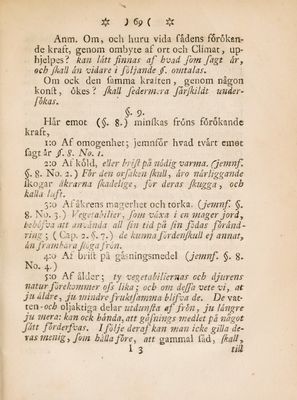 ☼ ) 69 ( ☼
Anm. Om, och huru vida sådens förökan-
de kraft, genom ombyte af ort och Climat, up-
hjelpes? kan lätt finnas af hvad som sagt är,
och skall än vidare i följande §. omtalas.
Om ock den samma kraften, genom någon
konst, ökes? skall sedermera särskildt under-
sökas.
§. 9.
Här emot (§. 8.) minskas fröns förökande
kraft,
1:o Af omogenhet; jemnför hvad tvärt emot
sagt är §. 8. No. 1.
2:o Af köld, eller brist på nödig varma. (jemnf.
§. 8. No. 2.) För den orsaken skull, äro närliggande
skogar åkrarna skadelige, för deras skugga, och
kalla luft.
3:o Af åkrens magerhet och torka. (jemnf. §.
8. No. 3.) Vegetabilier, som växa i en mager jord,
behöfva at använda all sin tid på sin födas föränd-
ring; (Cap. 2. §. 7.) de kunna fördenskull ej annat,
än frambära svoga frön.
4:o Af brist på gäsningsmedel (jemnf. §. 8.
No. 4.)
5:o Af ålder; ty vegetabiliernas och djurens
natur förekommer oss lika; och om dessa vete vi, at
ju äldre, ju mindre fruktsamma blifva de. De vat-
ten- och oljaktiga delar utdunsta af frön, ju längre
ju mera: kan ock hända, att gäsnings medlet på något
sätt förderfvas. I följe deraf kan man icke gilla de-
ras mening, som hålla före, att gammal säd, skall,
I 3 till